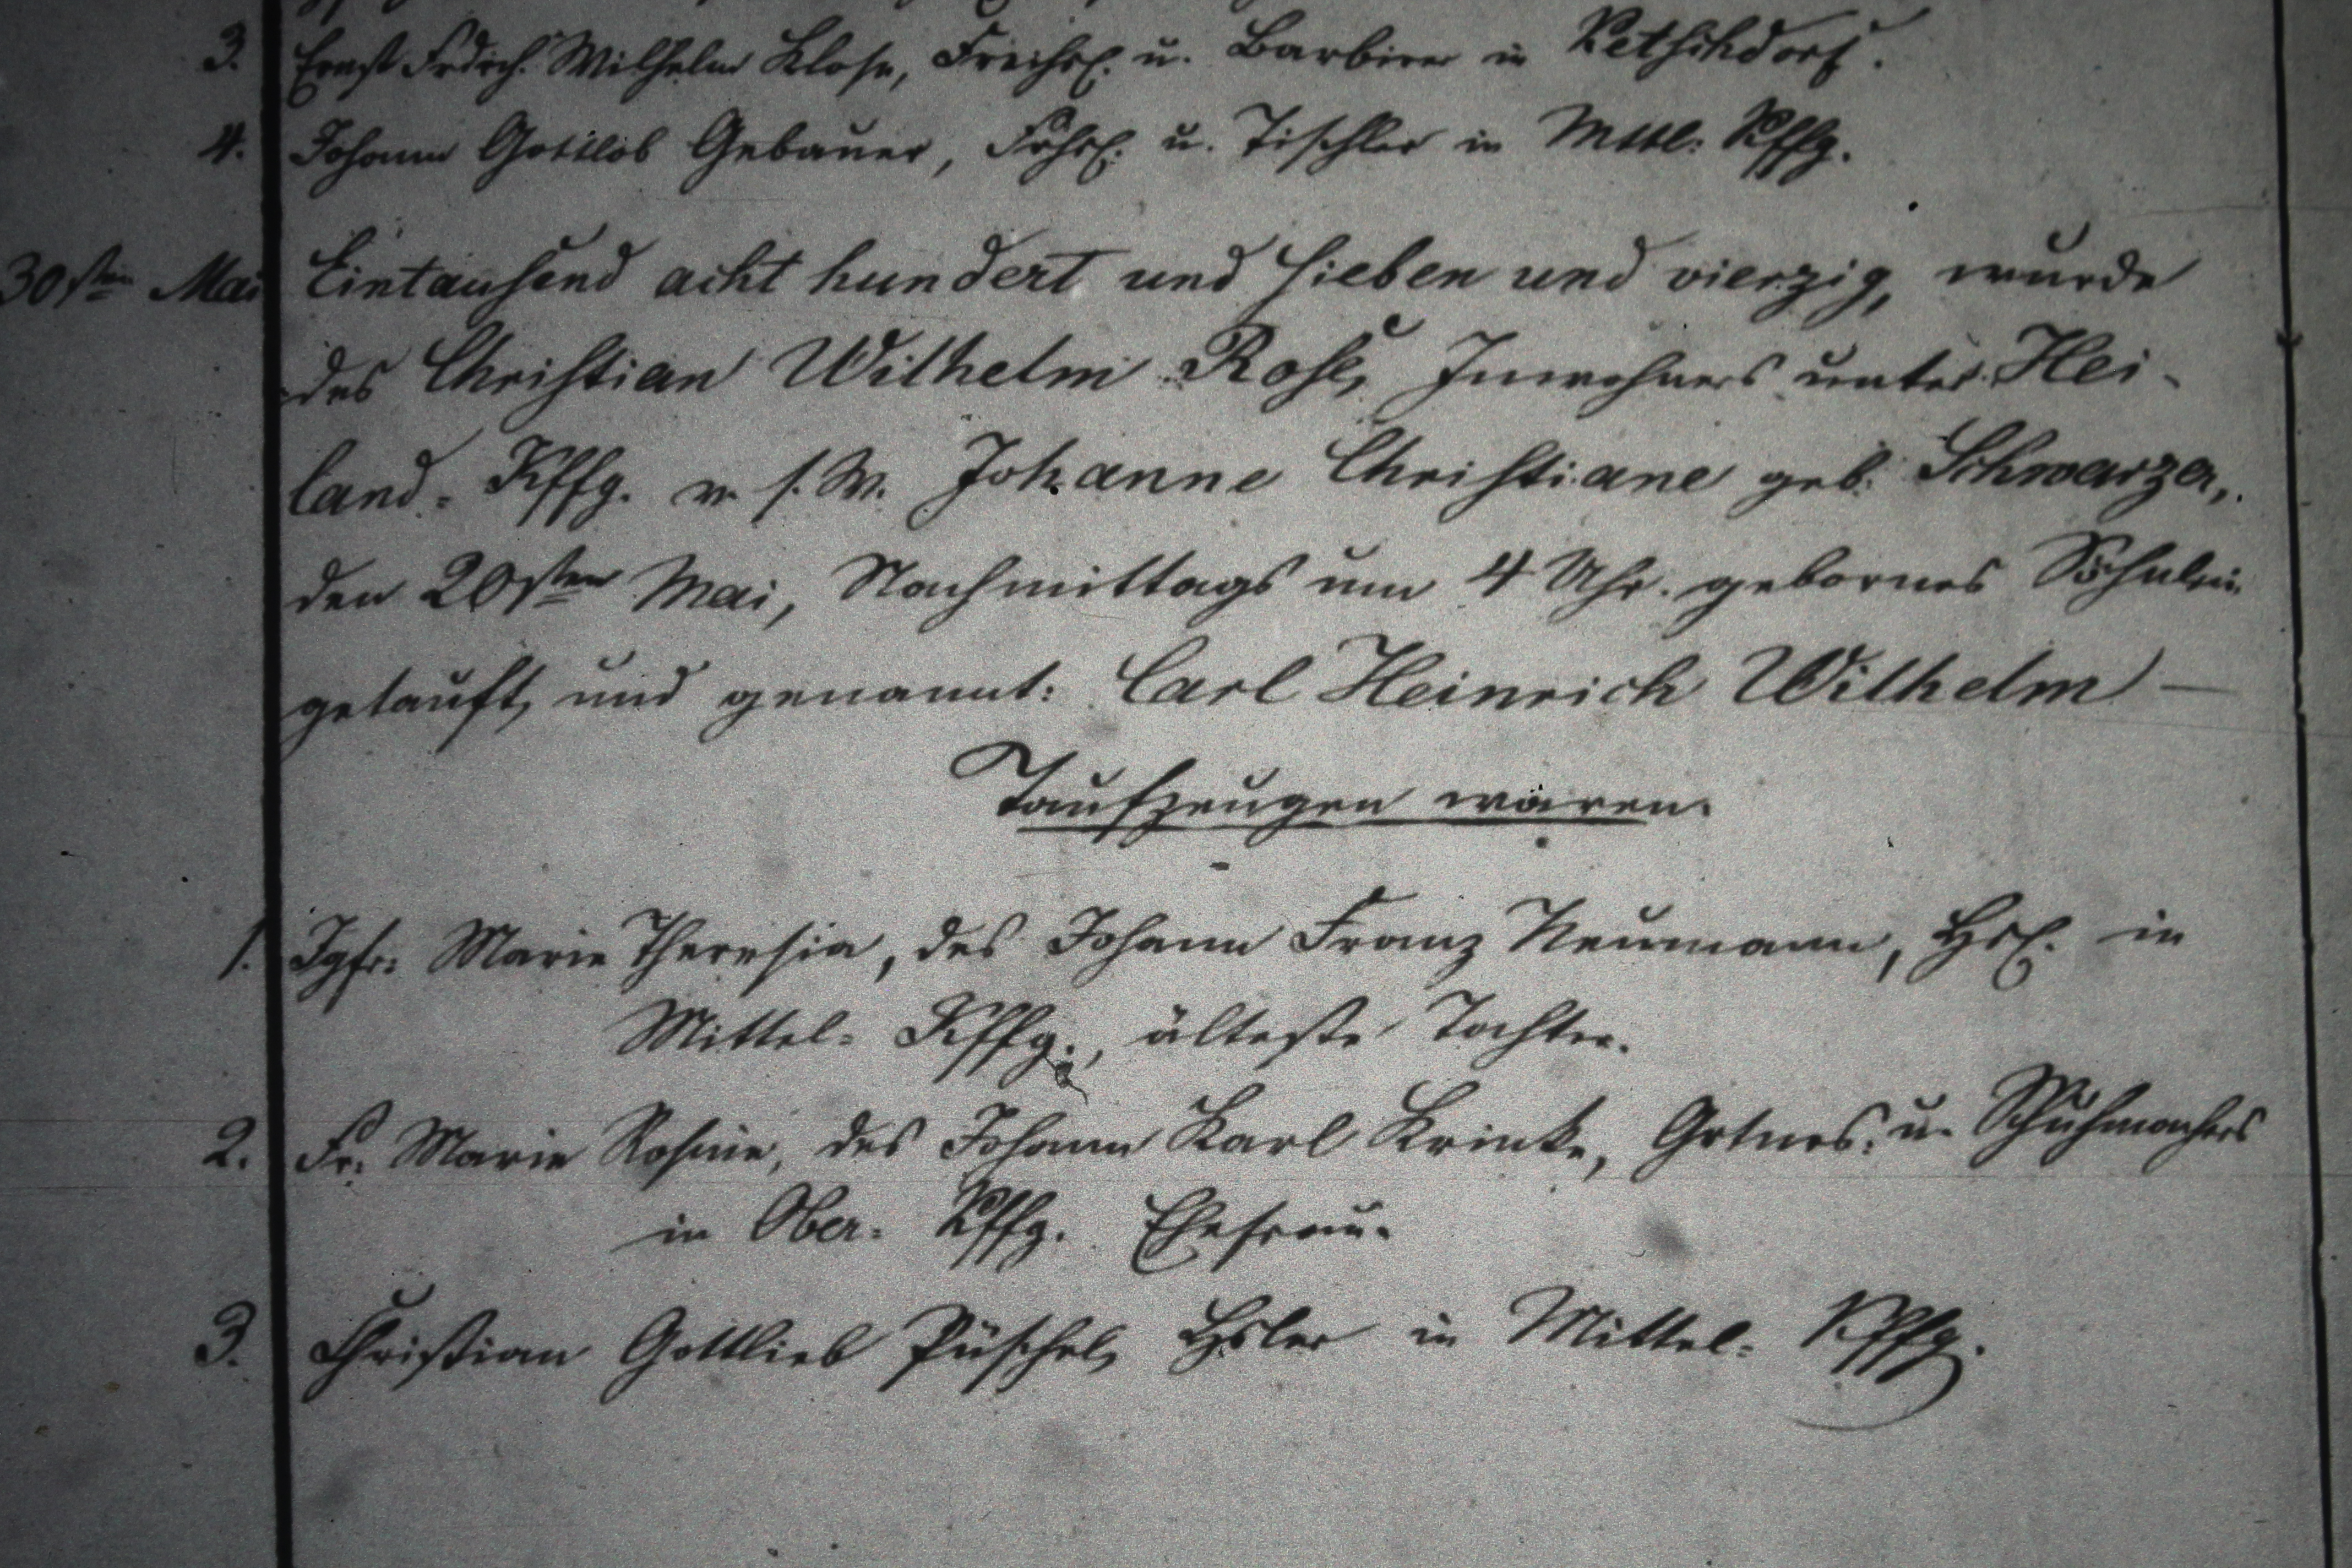 3. Ernst Frdrch. Wilhelm Klose, Freihsl. u. Barbier in Ketschdorf.
4. Johann Gottlob Gebauer, Frhsl. u. Tischler in Mttl: Kffg.
30sten Mai Eintausend acht hundert und sieben und vierzig, wurde
des Christian Wilhelm Rose, Inwohners unter Hei-
land-Kffg. v. s. W. Johanne Christiane geb. Schwarzer,
den 20sten Mai, Nachmittags um 4 Uhr. gebornes Söhnlein
getauft, und genannt: Carl Heinrich Wilhelm —
Taufzeugen waren.
1. Jgfr: Marie Theresia, des Johann Franz Neumann, Hsl. in
Mittel-Kffg., älteste Tochter.
2. Fr. Marie Rosine, des Johann Karl Krinke, Grtnrs. u. Schuhmachers
in Ober-Kffg. Ehefrau.
3. Christian Gottlieb Püschel, Hsler in Mittel-Kffg.